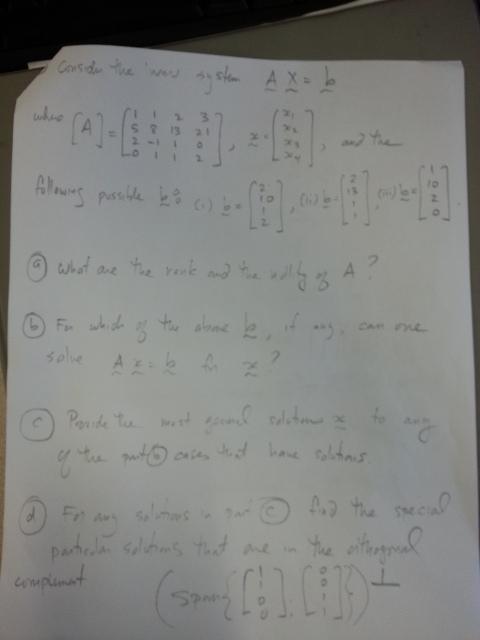 Consider the linear system A x = b
where [A] = [1 1 2 3; 5 8 13 21; 2 -1 1 0; 0 1 1 2], x = [x1; x2; x3; x4], and the
following possible b: (i) b = [2; 10; 1; 2], (ii) b = [2; 13; 1; 1], (iii) b = [1; 10; 2; 0].
(a) What are the rank and the nullity of A?
(b) For which of the above b, if any, can one
solve A x = b for x?
(c) Provide the most general solutions x to any
of the part (b) cases that have solutions.
(d) For any solutions in part (c) find the special
particular solutions that are in the orthogonal
complement (span{[1; 1; 0; 0], [0; 0; 1; 1]})⊥